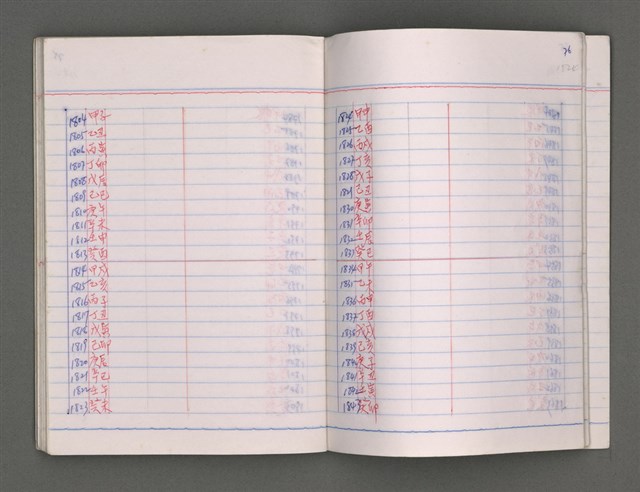 1804 甲子
1805 乙丑
1806 丙寅
1807 丁卯
1808 戊辰
1809 己巳
1810 庚午
1811 辛未
1812 壬申
1813 癸酉
1814 甲戌
1815 乙亥
1816 丙子
1817 丁丑
1818 戊寅
1819 己卯
1820 庚辰
1821 辛巳
1822 壬午
1823 癸未
76
1824 甲申
1825 乙酉
1826 丙戌
1827 丁亥
1828 戊子
1829 己丑
1830 庚寅
1831 辛卯
1832 壬辰
1833 癸巳
1834 甲午
1835 乙未
1836 丙申
1837 丁酉
1838 戊戌
1839 己亥
1840 庚子
1841 辛丑
1842 壬寅
1843 癸卯